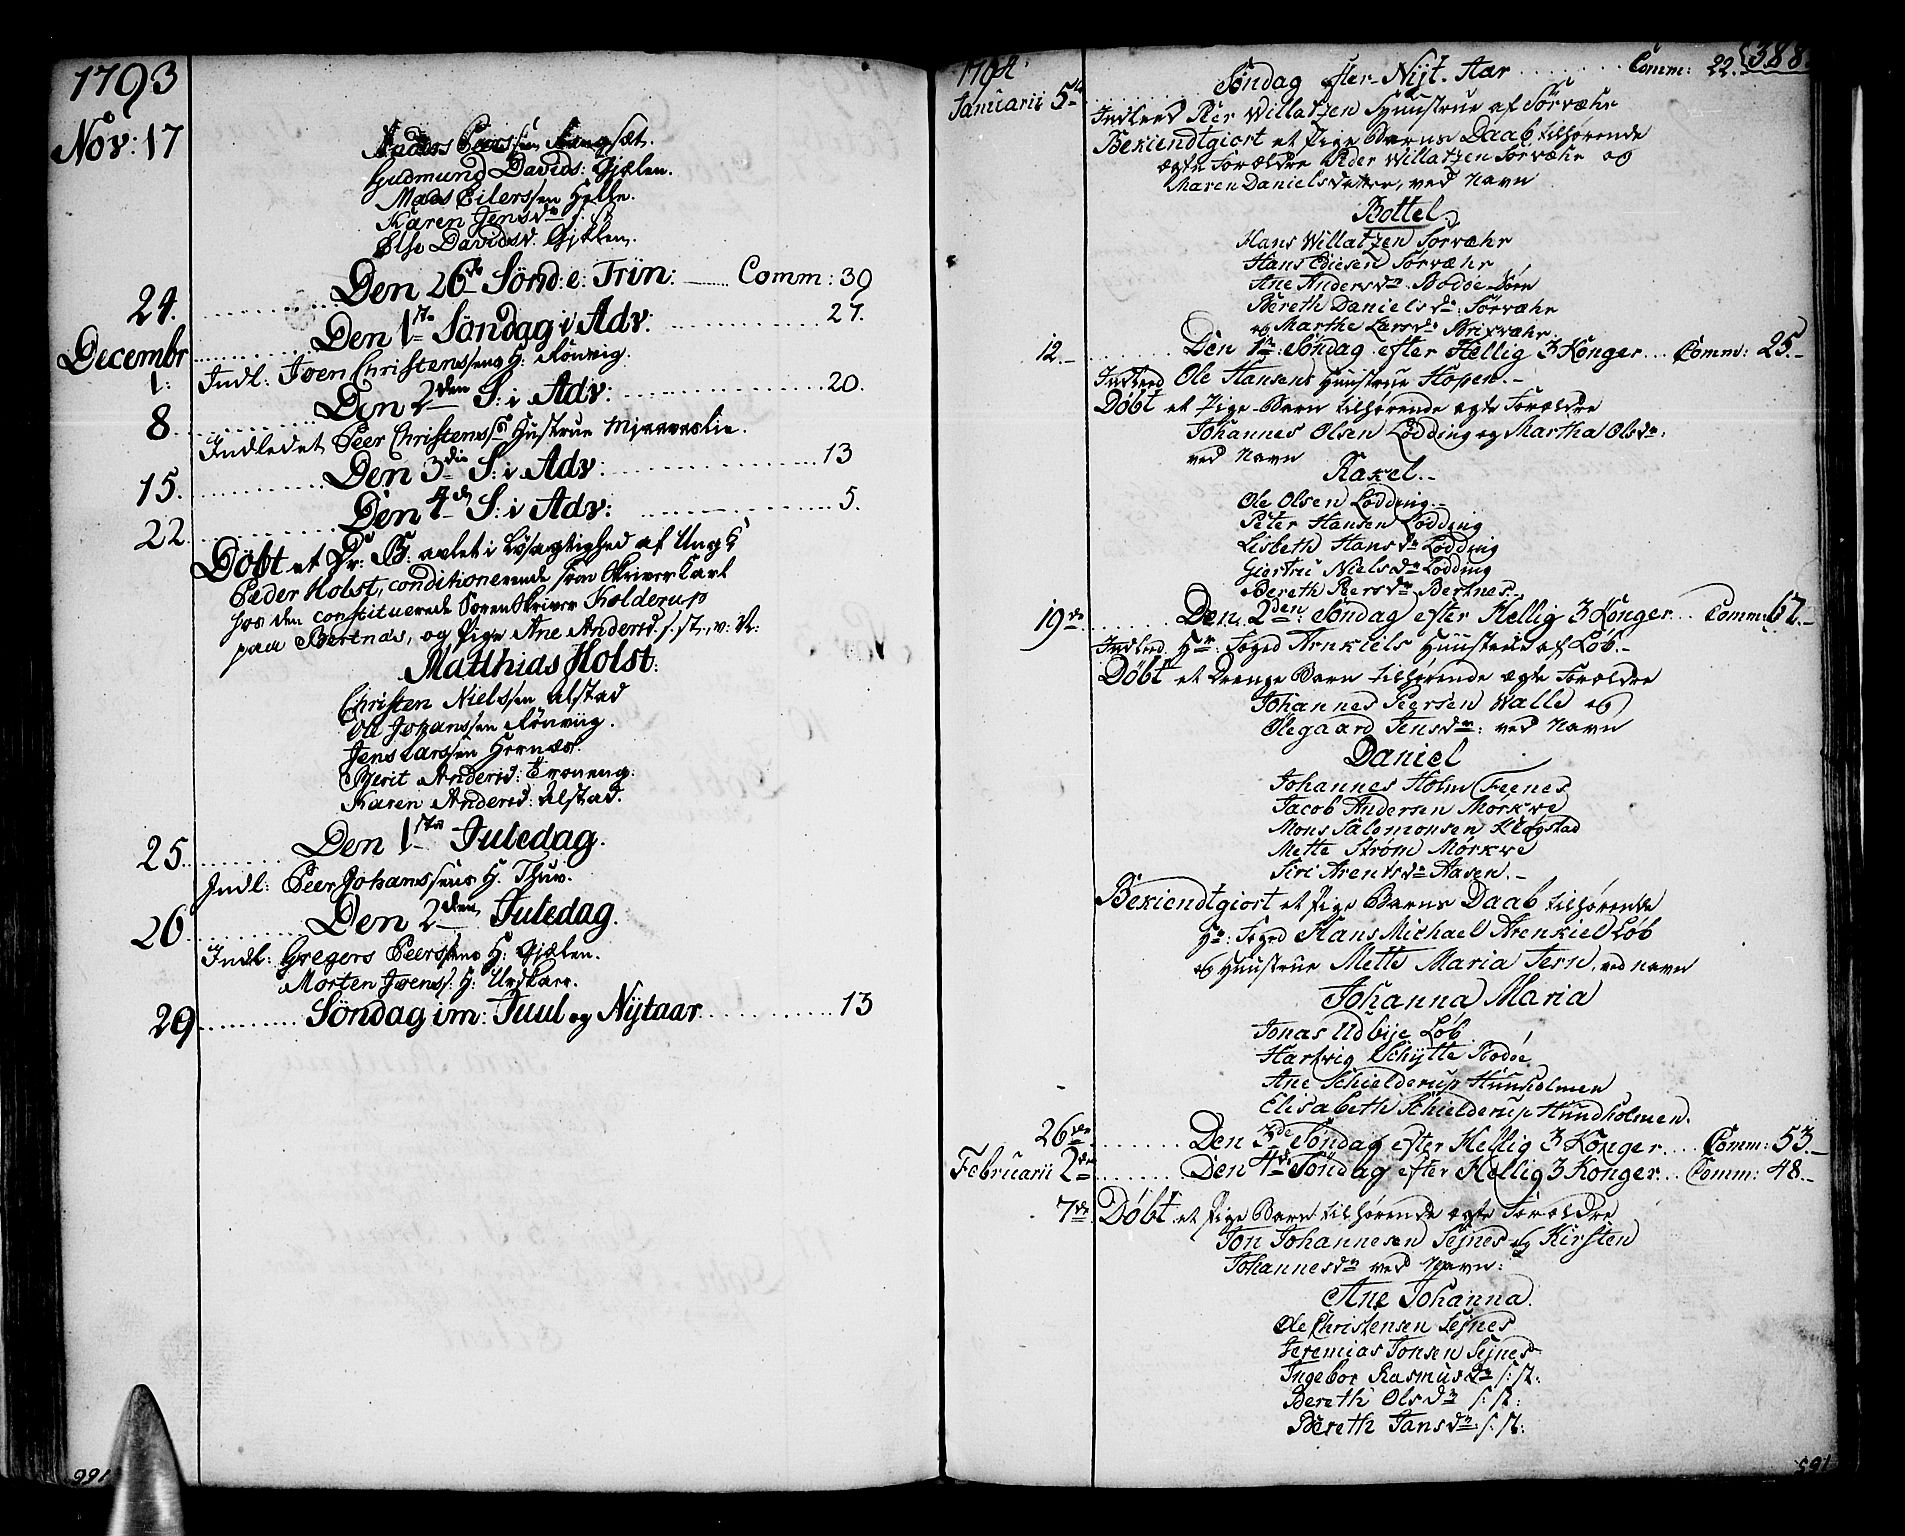 1793
Nov: 17
Gudmung Davids: Gjælen.
Mads Eilerssen Helle.
Karen Jensdr s. st.
Else Davidsd. Gjælen.
24. Den 26de Sönd: e: Trin: Comm: 39
Decembr 1: Den 1ste Söndag i Adv: 27.
Indl: Joen Christenssens H: Rönvig.
8. Den 2den S: i Adv: 20.
Indledet Peer Christenss: Hustrue
15. Den 3die S: i Adv: 13
22 Den 4de S: i Adv: 5.
Döbt et Dr: B: avlet i Lösagtighed af Ung K
Peder Holst, conditionerende som Skriver Karl
hos den constituerede Sorenskriver Kolderup
paa Bertnæs, og Pige Ane Andersd. s. st., v: N:
Matthias Holst.
Christen Nielssen Alstad
Ole Johanssen Rönviig.
Jens Larssen Hernæs.
Berit Andersd: Troneng.
Karen Andersd: Alstad.
25. Den 1ste Juledag.
Indl: Peer Johanssens H. Thuv.
26. Den 2den Juledag.
Indl: Gregers Peerssens H: Gjælen.
Morten Joenss: H: Urskarr.
29 Söndag im: Juul og Nÿtaar 13
991
1794
388.
Januarii 5te Søndag efter Nÿt. Aar Comm: 22.
Indleed Per Willatzen Huustrue af Sörvæhr
Bekiendtgiort et Pige Barns Daab tilhørende
ægte Forældre Peder Willatzen Sorvæhr og
Maren Danielsdatter, ved Navn
Bottel.
Hans Willatzen Sorvæhr
Hans Ediesen Sørvæhr
Ane Andersdr Bodøe-Løen
Bereth Danielsdr Sorvæhr
og Marthe Larsdr Brixvæhr.
12. Den 1ste Søndag efter Hellig 3 Konger Comm: 25.
Indleed Ole Hansens Huustrue Hopen.
Døbt et Pige-Barn tilhørende ægte Forældre
Johannes Olsen Lødding og Martha Olsdr:
ved Navn
Rakel.
Ole Olsen Lødding.
Peter Hansen Lødding
Lisbeth Hansdr Lødding
Giertru Nielsdr Lødding
Bereth Persdr Bertnes.
19de Den 2den Søndag efter Hellig 3 Konger Comm: 67.
Indleed. Hr: Foged Arnkiels Huustrue af Løb.
Døbt et Drenge Barn tilhørende ægte Forældre
Johannes Peersen Walle og
Olegaard Jensdr: ved Navn
Daniel
Johannes Holm Feenes
Jacob Andersen Morkve
Mons Salomonsen Kløgstad
Mette Strøm Mørkve
Siri Arentsdr Aasen.
Bekiendtgiort et Pige Barns Daab tilhørende
Hr: Foged Hans Michael Arenkiel Løb
og Huustrue Mette Maria Jern, ved Navn
Johanna Maria
Jonas Udbÿe Løb
Hartvig Schÿtte Bodøe
Ane Schielderup Hundholmen
Elisabeth Schielderup Hundholmen.
26de Den 3de Søndag efter Hellig 3 Konger Comm: 53
Februarii 2den Den 4de Søndag efter Hellig 3 Konger Comm: 48.
7de Døbt et Pige Barn tilhørende ægte Forældre
Jon Johannesen Sejnes og Kirsten
Johannesdr ved Navn:
Ane Johanna.
Ole Christensen Sejnes
Jeremias Jonsen Sejnes
Ingebor Rasmusdr s: st:
Bereth Olsdr s: st:
Bereth Jansdr: s: st: